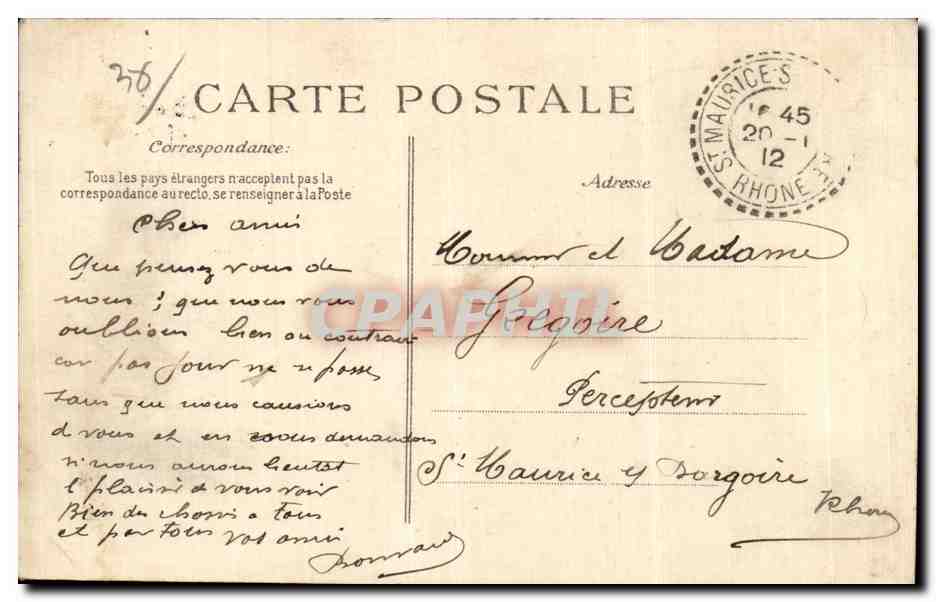 36/
CARTE POSTALE
Correspondance:
Tous les pays étrangers n'acceptent pas la
correspondance au recto, se renseigner à la Poste
Adresse
ST MAURICE-S
16 45
20 -1
12
RHONE
Chers amis
Que pensez vous de
nous ; que nous vous
oublions bien au contraire
car pas jour ne se passe
sans que nous causions
de vous et en nous demandons
si nous aurons bientot
l plaisir de vous voir
Bien des choses a tous
et par tous vos amis
Monsieur et Madame
Gregoire
Percepteur
St Maurice s/ Dargoire
Rhone
CPAPHIL